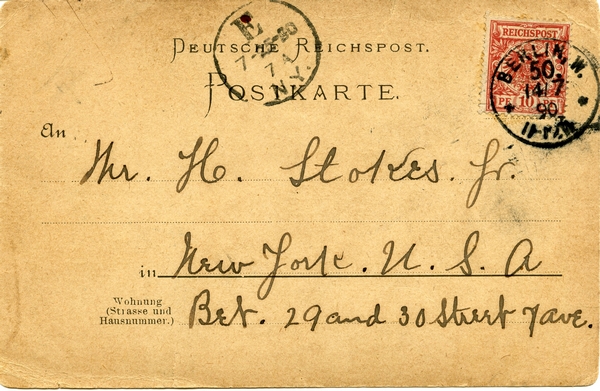 DEUTSCHE REICHSPOST.
POSTKARTE.
E
7-25-90
7 A
N.Y.
REICHSPOST
PF 10 PF
BERLIN, W.
50
14/7
90
11-12V
An
Mr. H. Stokes. Jr.
in New York. U. S. A
Wohnung
(Strasse und
Hausnummer.)
Bet. 29 and 30 Street 7 ave.